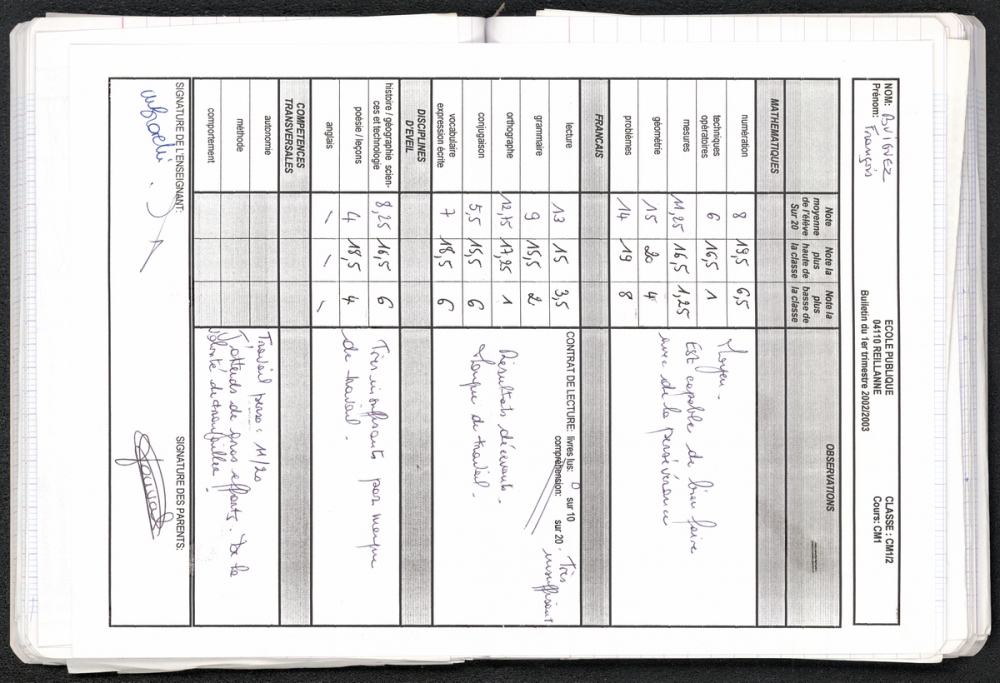 NOM: BUIGUEZ
Prénom: François
ECOLE PUBLIQUE
04110 REILLANNE
Bulletin du 1er trimestre 2002/2003
CLASSE : CM1/2
Cours: CM1
Note moyenne de l'élève Sur 20
Note la plus haute de la classe
Note la plus basse de la classe
OBSERVATIONS
MATHEMATIQUES
numération 8 19,5 6,5
techniques opératoires 6 16,5 1
mesures 11,25 16,5 1,25
géométrie 15 20 4
problèmes 14 19 8
Moyen.
Est capable de bien faire
avec de la persévérance
FRANCAIS
lecture 13 15 3,5
grammaire 9 15,5 2
orthographe 12,75 17,25 1
conjugaison 5,5 15,5 6
vocabulaire
expression écrite 7 18,5 6
CONTRAT DE LECTURE: livres lus: 0 sur 10
compréhension: sur 20. Très
insuffisant
Résultats décevants.
Manque de travail.
DISCIPLINES
D'EVEIL
histoire / géographie scien-
ces et technologie 8,25 16,5 6
poésie / leçons 4 18,5 4
anglais \ \ \
Très insuffisants par manque
de travail.
COMPETENCES
TRANSVERSALES
autonomie
méthode
comportement
Travail perso: 11/20
J'attends de gros efforts. De la
volonté de travailler.
SIGNATURE DE L'ENSEIGNANT:
SIGNATURE DES PARENTS: